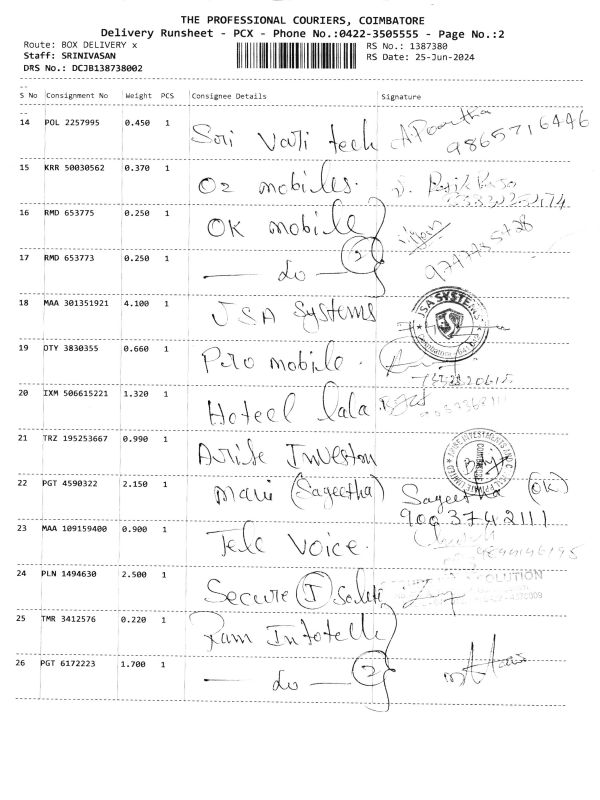 THE PROFESSIONAL COURIERS, COIMBATORE
Delivery Runsheet - PCX - Phone No.:0422-3505555 - Page No.:2
Route: BOX DELIVERY x RS No.: 1387380
Staff: SRINIVASAN RS Date: 25-Jun-2024
DRS No.: DCJB138738002
S No Consignment No Weight PCS Consignee Details Signature
14 POL 2257995 0.450 1 Sri Vari tech 9865716446
15 KRR 50030562 0.370 1 O2 mobiles.
16 RMD 653775 0.250 1 OK mobile
17 RMD 653773 0.250 1 — do — 2
18 MAA 301351921 4.100 1 JSA Systems JSA SYSTEMS
19 OTY 3830355 0.660 1 Pro mobile.
20 IXM 506615221 1.320 1 Hoteel lala
21 TRZ 195253667 0.990 1 Arise Investon
22 PGT 4590322 2.150 1 Mani (Sageetha) Sageetha (OK)
9003742111
23 MAA 109159400 0.900 1 Tele Voice.
24 PLN 1494630 2.500 1 Secure I Soluti
25 TMR 3412576 0.220 1 Ram Infotell
26 PGT 6172223 1.700 1 — do — 2